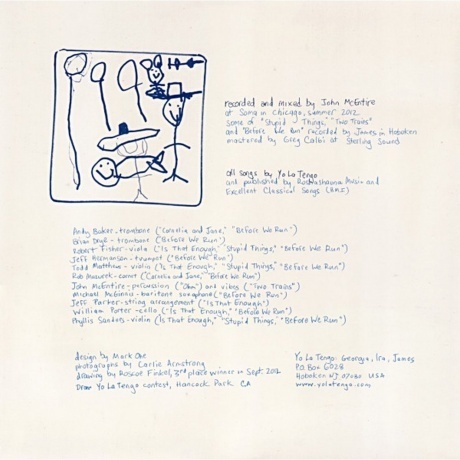 recorded and mixed by John McEntire
at Soma in Chicago, summer 2012
some of "Stupid Things," "Two Trains"
and "Before We Run" recorded by James in Hoboken
mastered by Greg Calbi at Sterling Sound
all songs by Yo La Tengo
and published by Roshashauna Music and
Excellent Classical Songs (BMI)
Andy Baker-trombone ("Cornelia and Jane," "Before We Run")
Brian - trombone ("Before We Run")
Robert Fisher-viola ("Is That Enough," "Stupid Things," "Before We Run")
Jeff - trumpet ("Before We Run")
Todd Matthews - violin ("Is That Enough," "Stupid Things," "Before We Run")
Rob Mazurek-cornet ("Cornelia and Jane," "Before We Run")
John McEntire-percussion ("Ohm") and vibes ("Two Trains")
Michael McGinnis-baritone saxophone ("Before We Run")
Jeff Parker-string arrangement ("Is That Enough")
William Porter-cello ("Is That Enough," "Before We Run")
Phyllis Sanders-violin ("Is That Enough," "Stupid Things," "Before We Run")
design by Mark
photographs by Carlie Armstrong
drawing by Roscoe Finkel, 3rd place winner Sept. 2012
Draw Yo La Tengo contest, Hancock Park CA
Yo La Tengo: Georgia, Ira, James
P.O. Box 6028
Hoboken NJ 07030 USA
www.yolatengo.com